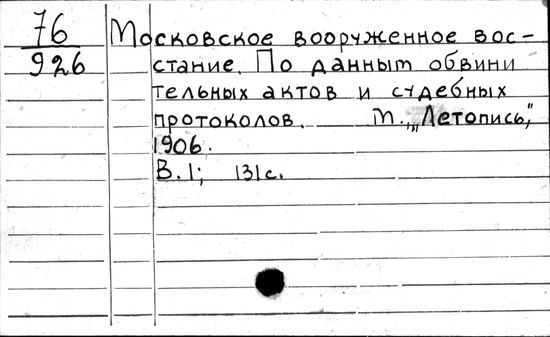 76
926
Московское вооруженное вос-
стание. По данным обвини
тельных актов и судебных
протоколов. М., „Летопись,"
1906.
В. 1; 131 с.